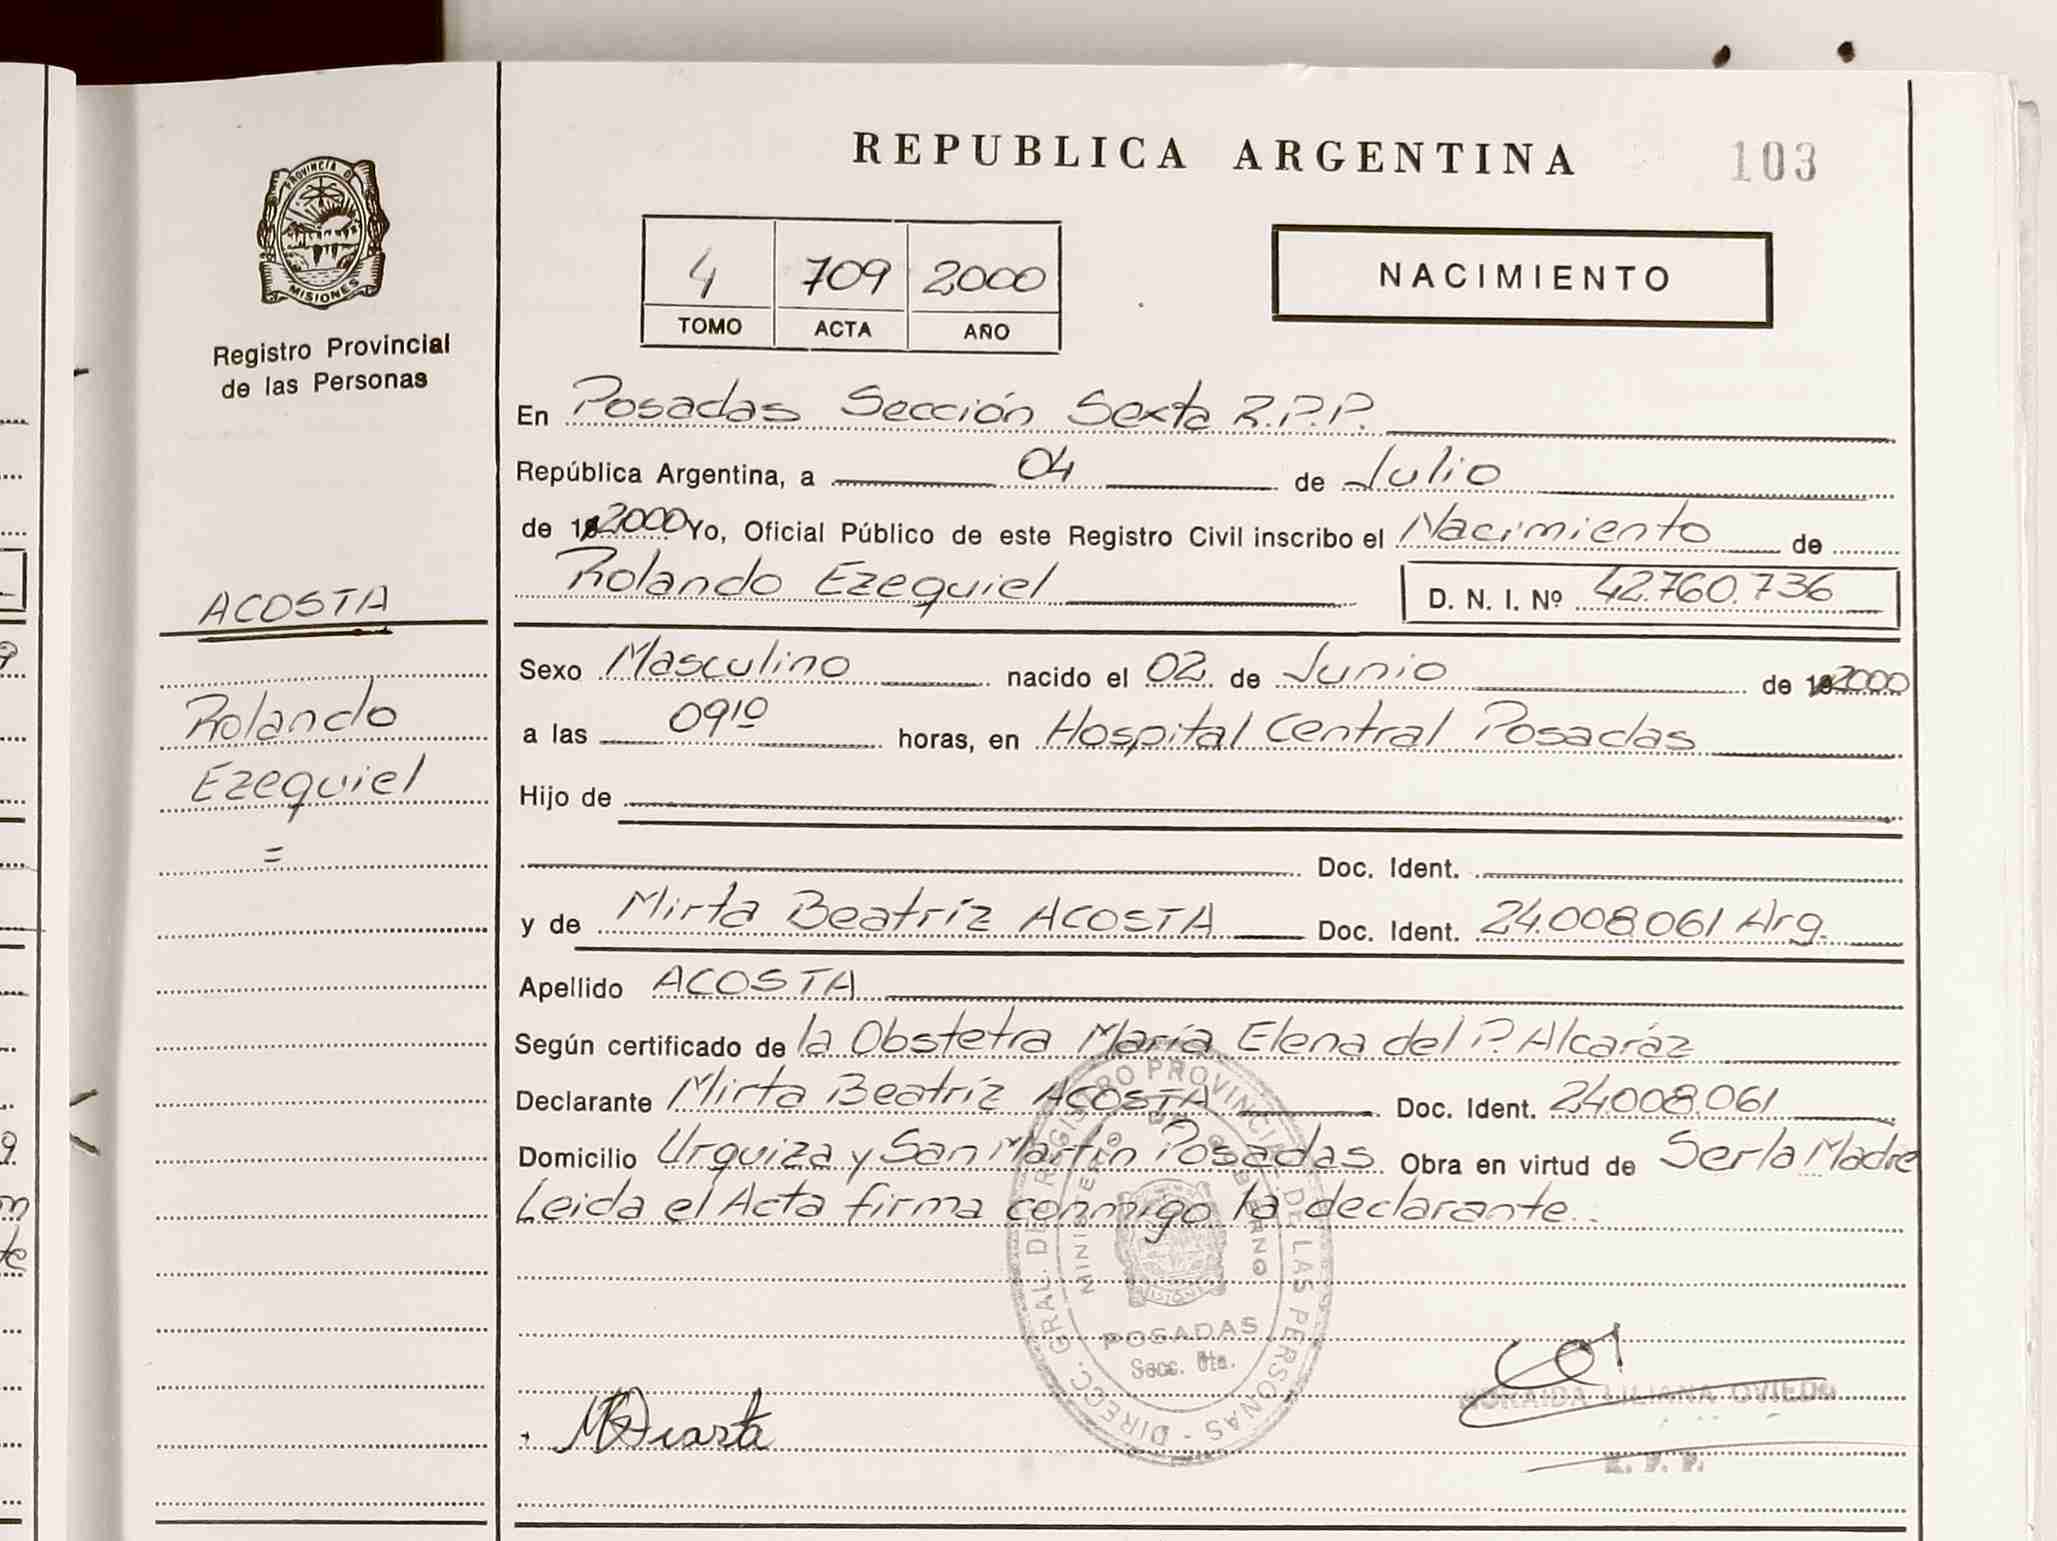 REPUBLICA ARGENTINA
103
PROVINCIA D
MISIONES
Registro Provincial
de las Personas
4 709 2000
TOMO ACTA AÑO
NACIMIENTO
En Posadas Sección Sexta R.P.P.
República Argentina, a 04 de Julio
de 2000 Yo, Oficial Público de este Registro Civil inscribo el Nacimiento de
Rolando Ezequiel D. N. I. Nº 42.760.736
ACOSTA
Rolando
Ezequiel
=
Sexo Masculino nacido el 02 de Junio de 2000
a las 09¹⁰ horas, en Hospital Central Posadas
Hijo de
Doc. Ident.
y de Mirta Beatríz ACOSTA Doc. Ident. 24.008.061 Arg.
Apellido ACOSTA
Según certificado de la Obstetra María Elena del P. Alcaráz
Declarante Mirta Beatríz ACOSTA Doc. Ident. 24.008.061
Domicilio Urquiza y San Martín Posadas Obra en virtud de Ser la Madre
Leida el Acta firma conmigo la declarante.
DIRECC. GRAL. DEL REGISTRO PROVINCIAL DE LAS PERSONAS
MINISTERIO DE GOBIERNO
POSADAS
Secc. 6ta.
LILIANA OVIEDO
R. P. P.